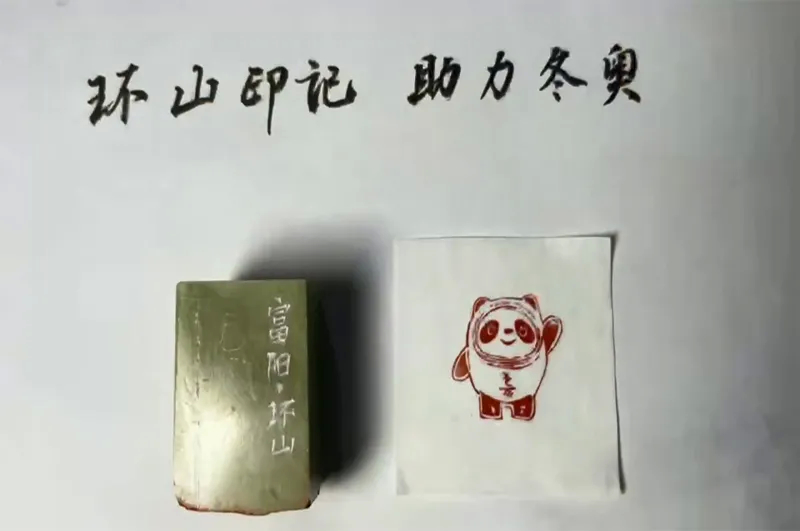 环山印记 助力冬奥
富阳·环山